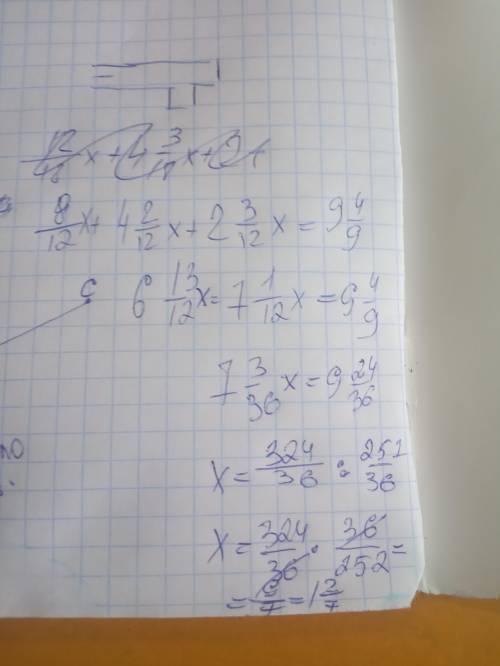 8/12 x + 4 2/12 x + 2 3/12 x = 9 4/9
c 6 13/12 x = 7 1/12 x = 9 4/9
7 3/36 x = 9 24/36
x = 324/36 : 251/36
x = 324/36 · 36/252 =
= 9/7 = 1 2/7